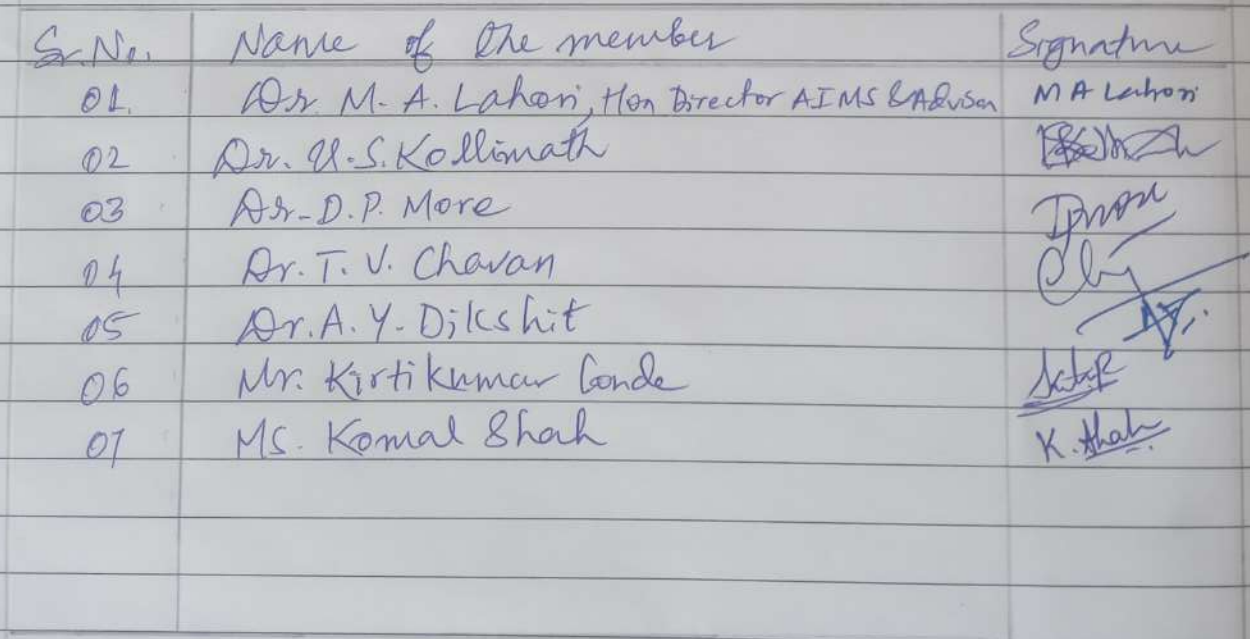 Sr. No. Name of the member Signature
01. Dr. M. A. Lahori, Hon Director AIMS & Advisor M A Lahori
02 Dr. U. S. Kollimath
03 Dr. D. P. More
04 Dr. T. V. Chavan
05 Dr. A. Y. Dikshit
06 Mr. Kirtikumar Conde
07 Ms. Komal Shah K. Shah